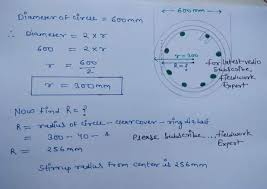 Diameter of circle = 600mm
∴ Diameter = 2 x r
600 = 2 x r
r = 600/2
r = 300mm
Now find R = ?
R = radius of circle - clearcover - ring dia
= 300 - 40 -
R = 256mm
Stirrup radius from center is 256mm
600mm
r = 300
R = ?
for latest vedio
Subscribe,
fieldwork
Expert
Please Subscribe.... fieldwork
Expert